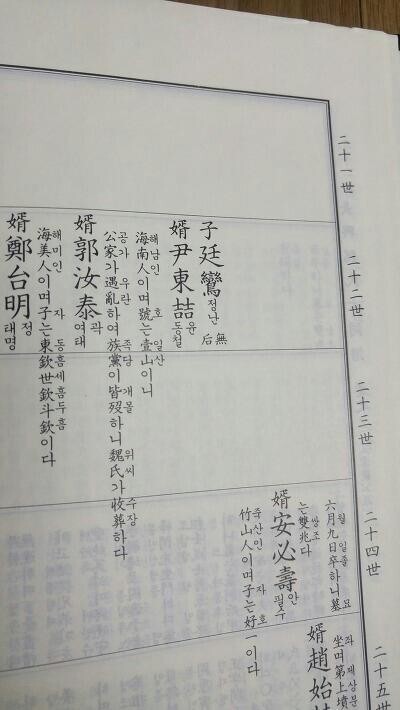 二十一世
二十二世
子廷鸞 정난 無后
婿尹東喆 윤동철
海南人이며號는壹山이니
해남인 호 일산
婿郭汝泰 곽여태
公家가遇亂하여族黨이皆歿하니魏氏가收葬하다
공가 우란 족당 개몰 위씨 수장
婿鄭台明 정태명
海美人이며子는東欽世欽斗欽이다
해미인 자 동흠세흠두흠
二十三世
二十四世
六月九日卒하니墓
월 일졸 묘
는雙兆다
쌍조
婿安必壽 안필수
竹山人이며子는好一이다
죽산인 자 호
二十五世
坐며第上墳
좌 제상분
婿趙始